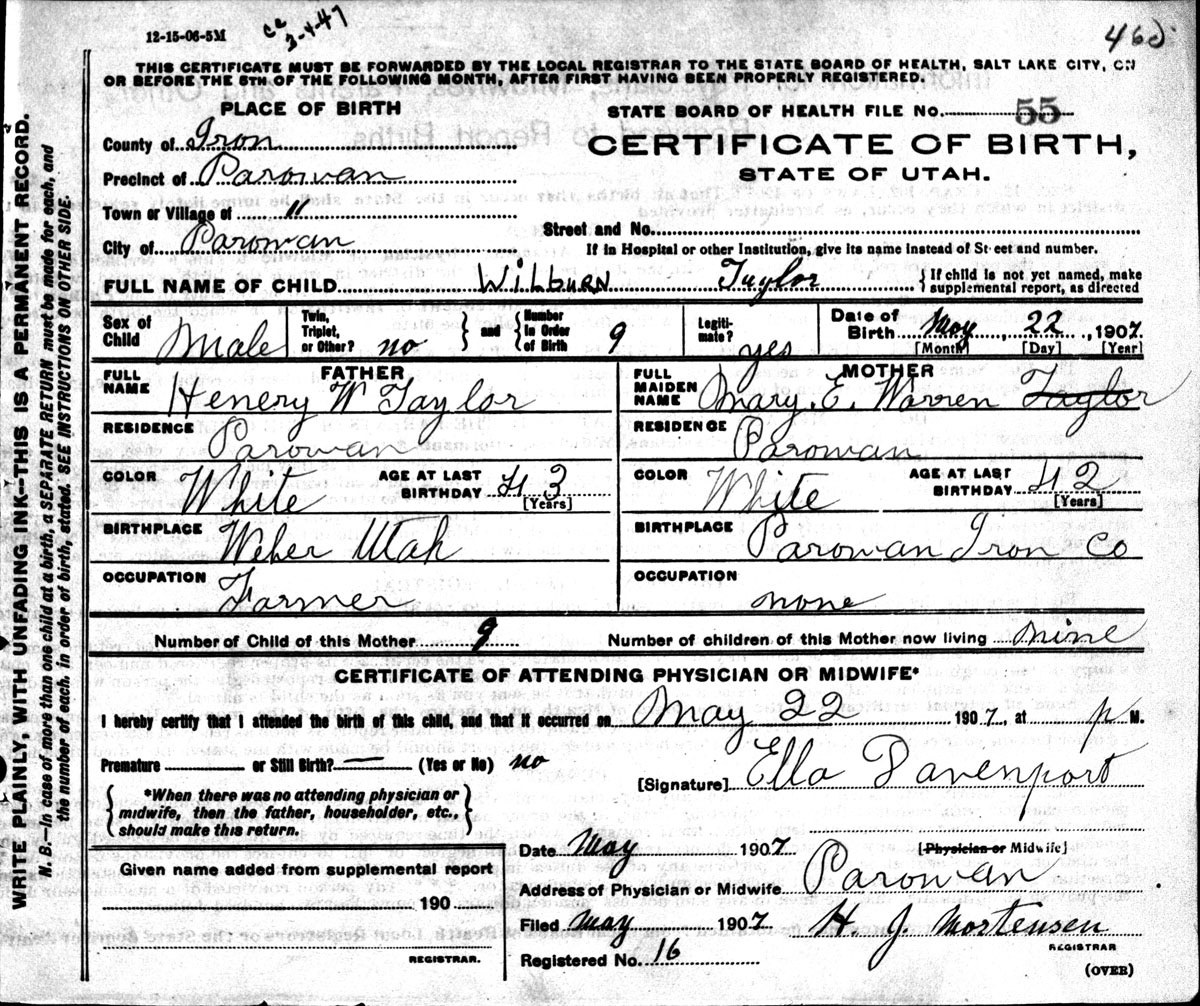 12-15-06-5M
ca 3-4-47
THIS CERTIFICATE MUST BE FORWARDED BY THE LOCAL REGISTRAR TO THE STATE BOARD OF HEALTH, SALT LAKE CITY, ON
OR BEFORE THE 5TH OF THE FOLLOWING MONTH, AFTER FIRST HAVING BEEN PROPERLY REGISTERED.
PLACE OF BIRTH
STATE BOARD OF HEALTH FILE NO. 55
County of Iron
CERTIFICATE OF BIRTH,
Precinct of Parowan
STATE OF UTAH.
Town or Village of "
Street and No.
City of Parowan
If in Hospital or other Institution, give its name instead of Street and number.
FULL NAME OF CHILD Wilburn Taylor { If child is not yet named, make supplemental report, as directed
Sex of Child Male Twin, Triplet, or Other? no } and { Number in Order of Birth 9 Legitimate? yes Date of Birth May 22, 1907
[Month] [Day] [Year]
FATHER
MOTHER
FULL NAME Henery W Taylor
FULL MAIDEN NAME Mary. E. Warren Taylor
RESIDENCE Parowan
RESIDENCE Parowan
COLOR White AGE AT LAST BIRTHDAY 43 [Years]
COLOR White AGE AT LAST BIRTHDAY 42 [Years]
BIRTHPLACE Weber Utah
BIRTHPLACE Parowan Iron Co
OCCUPATION Farmer
OCCUPATION none
Number of Child of this Mother 9 Number of children of this Mother now living nine
CERTIFICATE OF ATTENDING PHYSICIAN OR MIDWIFE*
I hereby certify that I attended the birth of this child, and that it occurred on May 22 1907, at P M.
Premature or Still Birth? (Yes or No) no
[Signature] Ella Davenport
{ *When there was no attending physician or midwife, then the father, householder, etc., should make this return. }
Date May 1907 [Physician or Midwife]
Given name added from supplemental report
190
REGISTRAR.
Address of Physician or Midwife Parowan
Filed May 1907 H. J. Mortensen
REGISTRAR
Registered No. 16
(OVER)
WRITE PLAINLY, WITH UNFADING INK—THIS IS A PERMANENT RECORD.
N. B.—In case of more than one child at a birth, a SEPARATE RETURN must be made for each, and
the number of each, in order of birth, stated. SEE INSTRUCTIONS ON OTHER SIDE.